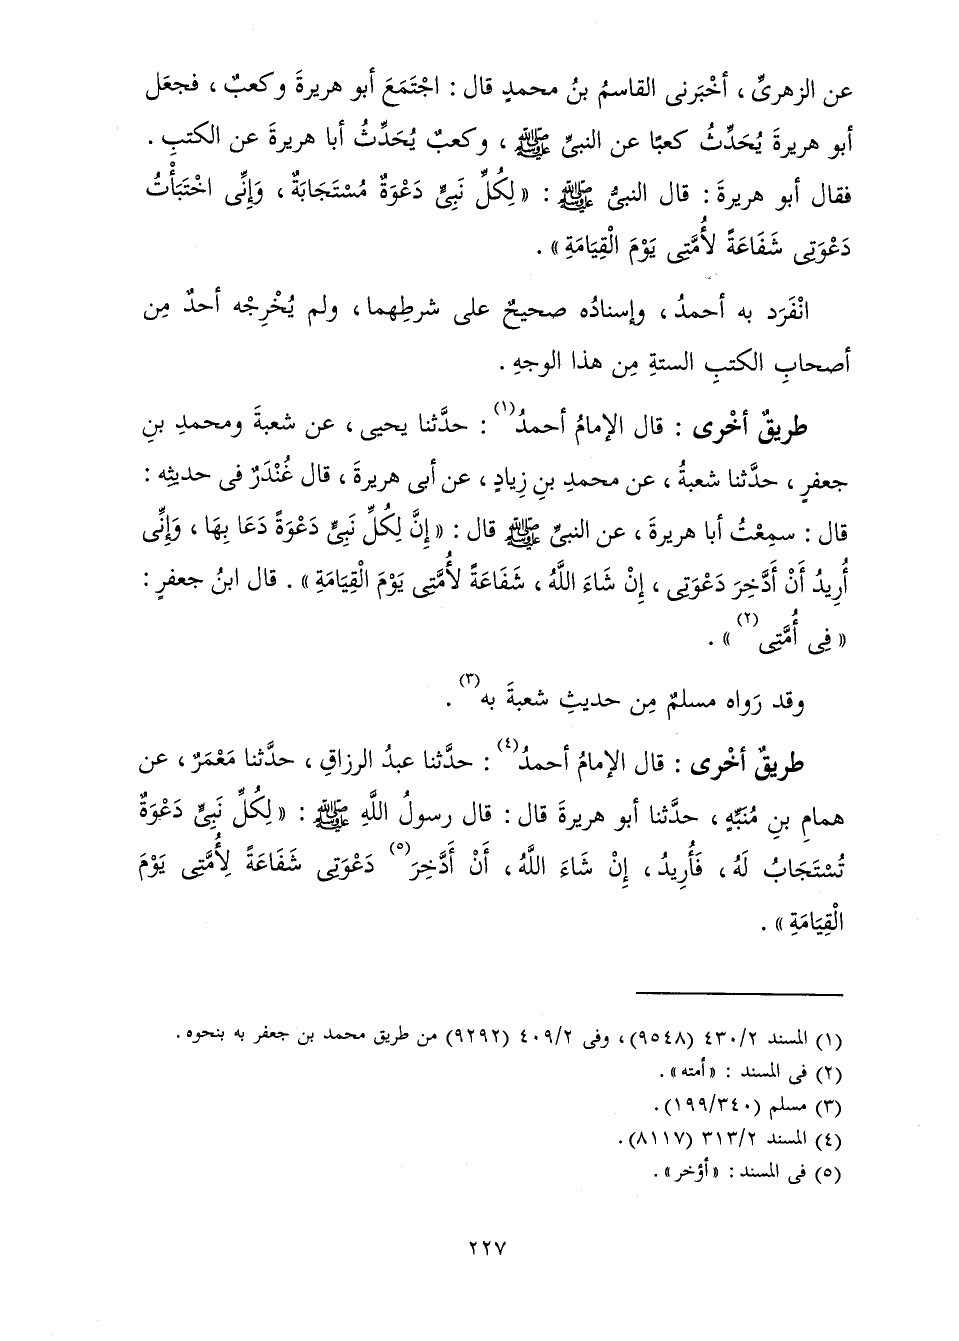 عن الزهريِّ ، أخْبَرنى القاسمُ بنُ محمدٍ قال : اجْتَمَعَ أبو هريرةَ وكعبٌ ، فجعَل
أبو هريرةَ يُحَدِّثُ كعبًا عن النبيِّ ﷺ ، وكعبٌ يُحَدِّثُ أبا هريرةَ عن الكتبِ .
فقال أبو هريرةَ : قال النبيُّ ﷺ : « لِكُلِّ نَبِىٍّ دَعْوَةٌ مُسْتَجَابَةٌ ، وَإِنِّى اخْتَبَأْتُ
دَعْوَتِى شَفَاعَةً لأُمَّتِى يَوْمَ الْقِيَامَةِ » .
انْفَرَد به أحمدُ ، وإسنادُه صحيحٌ على شرطِهما ، ولم يُخْرِجْه أحدٌ مِن
أصحابِ الكتبِ الستةِ مِن هذا الوجهِ .
طريقٌ أخْرى : قال الإمامُ أحمدُ(١) : حدَّثنا يحيى ، عن شعبةَ ومحمدِ بنِ
جعفرٍ ، حدَّثنا شعبةُ ، عن محمدِ بنِ زيادٍ ، عن أبى هريرةَ ، قال غُنْدَرٌ فى حديثِه :
قال : سمِعْتُ أبا هريرةَ ، عن النبيِّ ﷺ قال : « إِنَّ لِكُلِّ نَبِىٍّ دَعْوَةً دَعَا بِهَا ، وَإِنِّى
أُرِيدُ أَنْ أَدَّخِرَ دَعْوَتِى ، إِنْ شَاءَ اللَّهُ ، شَفَاعَةً لأُمَّتِى يَوْمَ الْقِيَامَةِ » . قال ابنُ جعفرٍ :
« فِى أُمَّتِى(٢) » .
وقد رَواه مسلمٌ مِن حديثِ شعبةَ به(٣) .
طريقٌ أخْرى : قال الإمامُ أحمدُ(٤) : حدَّثنا عبدُ الرزاقِ ، حدَّثنا مَعْمَرٌ ، عن
همامِ بنِ مُنَبِّهٍ ، حدَّثنا أبو هريرةَ قال : قال رسولُ اللَّهِ ﷺ : « لِكُلِّ نَبِىٍّ دَعْوَةٌ
تُسْتَجَابُ لَهُ ، فَأُرِيدُ ، إِنْ شَاءَ اللَّهُ ، أَنْ أَدَّخِرَ(٥) دَعْوَتِى شَفَاعَةً لِأُمَّتِى يَوْمَ
الْقِيَامَةِ » .
(١) المسند ٤٣٠/٢ (٩٥٤٨) ، وفى ٤٠٩/٢ (٩٢٩٢) من طريق محمد بن جعفر به بنحوه .
(٢) فى المسند : « أمته » .
(٣) مسلم (١٩٩/٣٤٠) .
(٤) المسند ٣١٣/٢ (٨١١٧) .
(٥) فى المسند : « أؤخر » .
٢٢٧